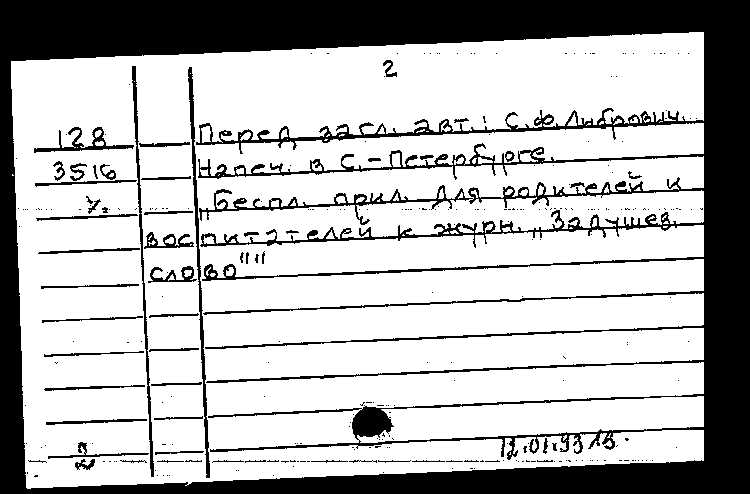 2
128 Перед загл. авт.: С.Ф. Либрович.
3516 Напеч. в С.-Петербурге.
„Беспл. прил. для родителей и
воспитателей к журн. „Задушев.
слово""
12.01.93